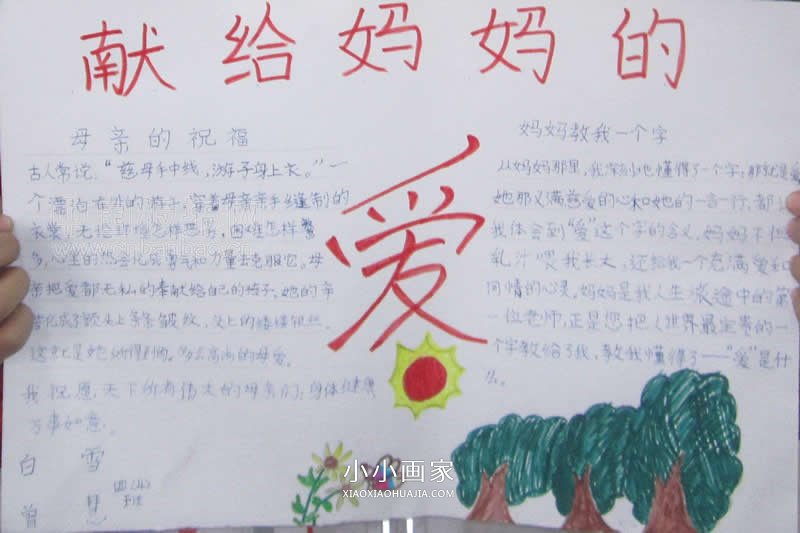 献给妈妈的
爱
母亲的祝福
古人常说：“慈母手中线，游子身上衣。”一
个漂泊在外的游子，穿着母亲亲手缝制的
衣裳，无论环境怎样恶劣，困难怎样繁
多，心里的热会化成勇气和力量去克服它。母
亲把爱都无私的奉献给自己的孩子，她的辛
苦化成了额头上条条皱纹，头上的缕缕银丝。
这就是她
高尚的母爱。
我祝愿天下所有伟大的母亲们：身体健康
万事如意。
白雪
曾
四（八）
班
妈妈教我一个字
从妈妈那里，我深刻地懂得了一个字：那就是爱
她那又满慈爱的心和她的一言一行，都
我体会到“爱”这个字的含义，妈妈不但
乳汁喂我长大，还给我一个充满爱和
同情的心灵。妈妈是我人生旅途中的第
一位老师，正是您把人世界最宝贵的一
个字教给了我，教我懂得了——“爱”是什
么。
小小画家
XIAOXIAOHUAJIA.COM